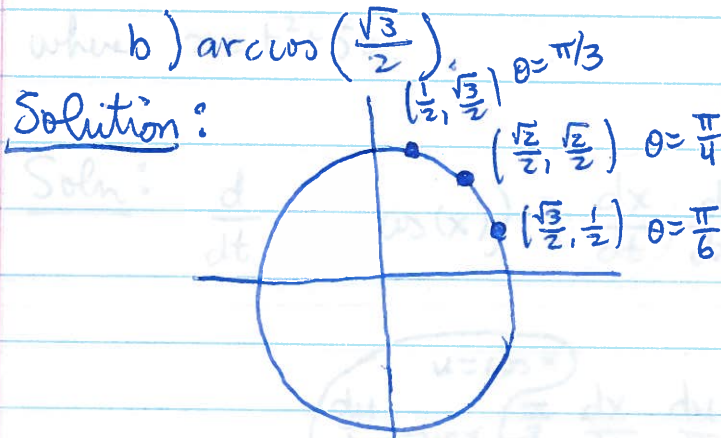 b) arccos(√3/2).
Solution:
(1/2, √3/2) θ=π/3
(√2/2, √2/2) θ=π/4
(√3/2, 1/2) θ=π/6